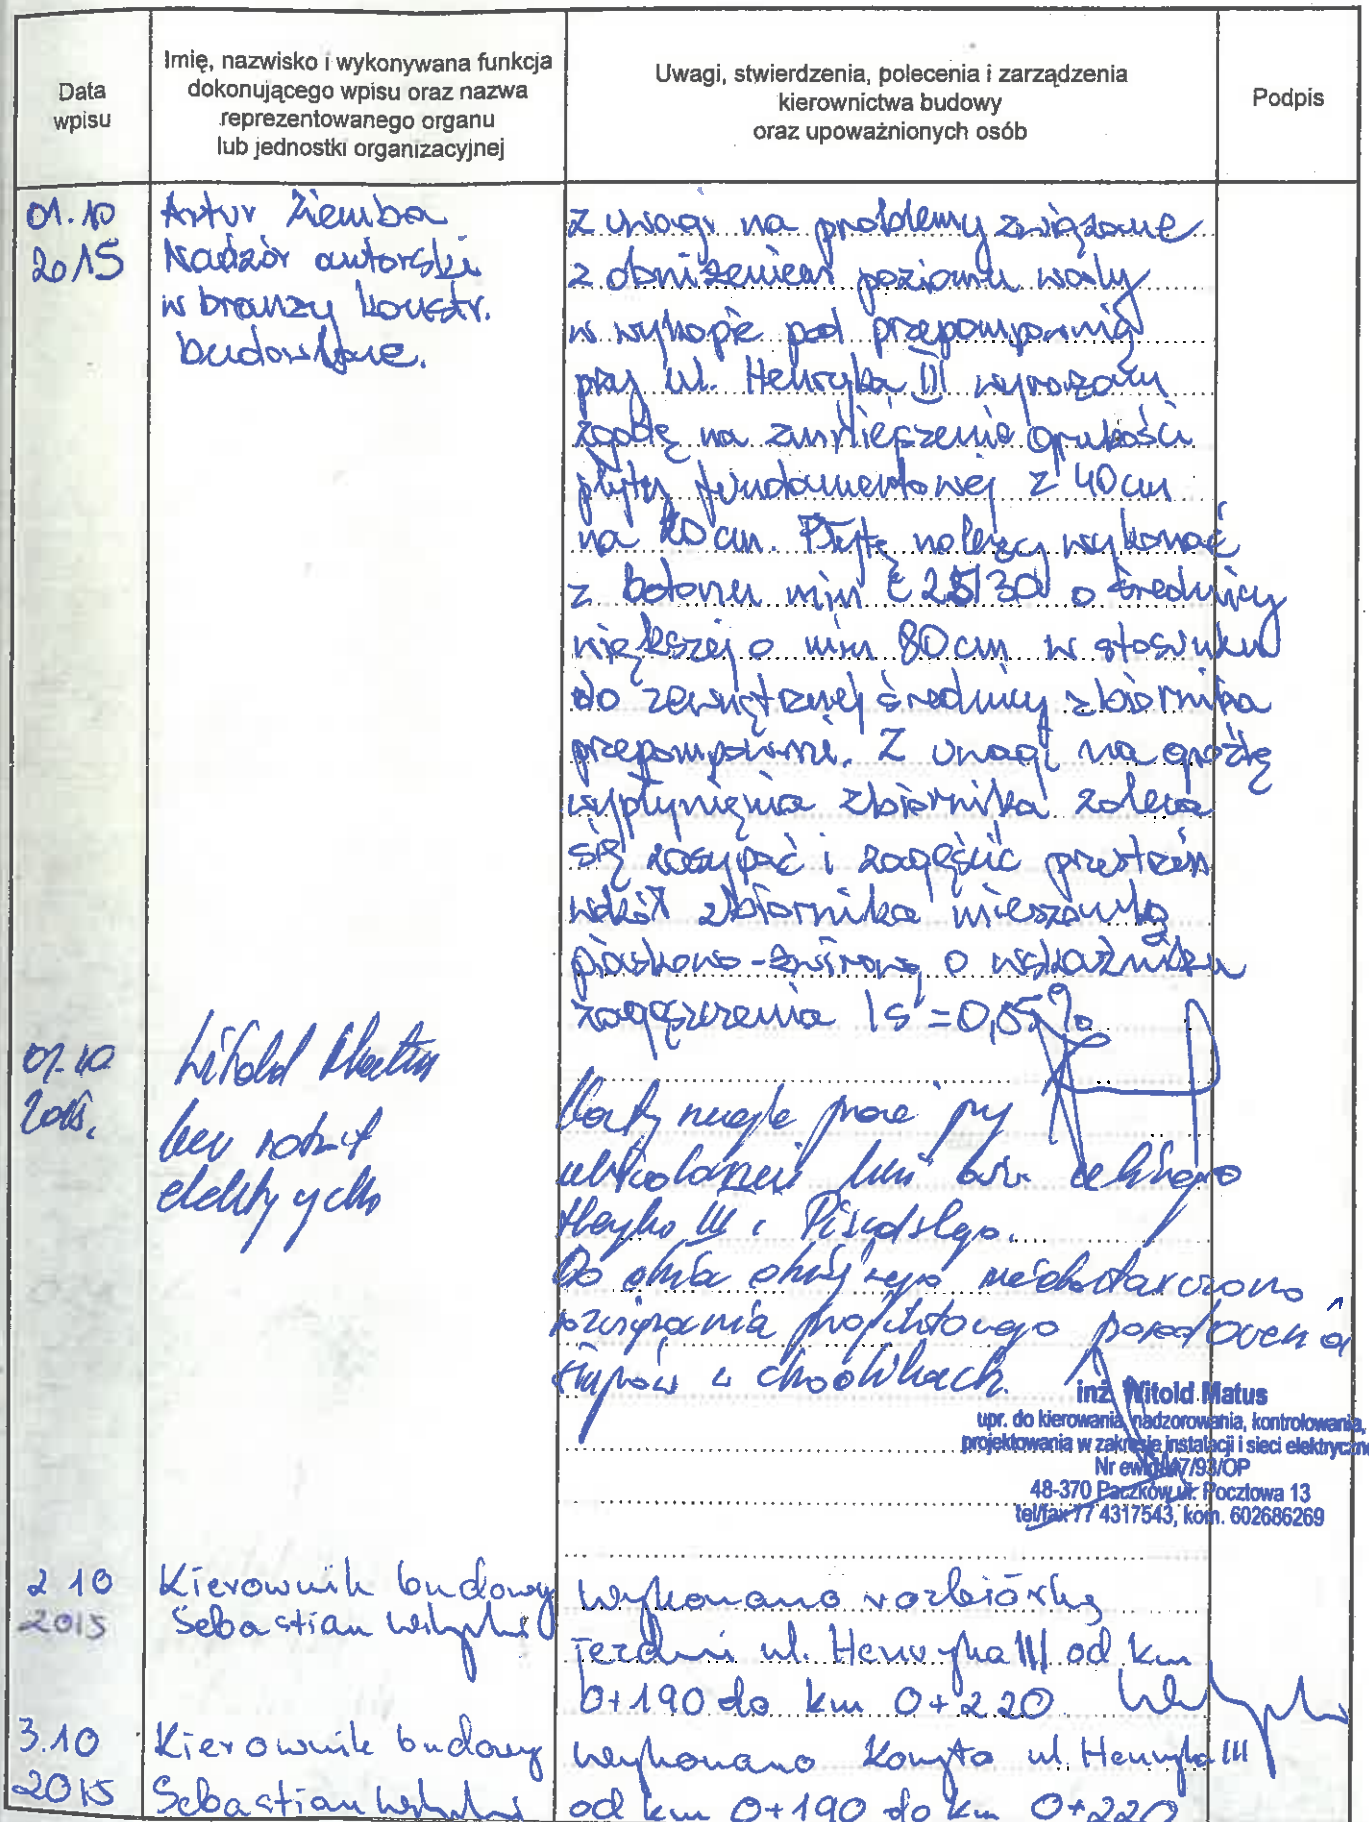 Data
wpisu
Imię, nazwisko i wykonywana funkcja
dokonującego wpisu oraz nazwa
reprezentowanego organu
lub jednostki organizacyjnej
Uwagi, stwierdzenia, polecenia i zarządzenia
kierownictwa budowy
oraz upoważnionych osób
Podpis
01.10
2015
Artur Ziemba
Nadzór autorski
w branzy konstr.
budowlane.
z uwagi na problemy związane
z obniżeniem poziomu wody
w wykopie pod przepompownią
przy ul. Henryka III wyrażam
zgodę na zmniejszenie grubości
płyty fundamentowej z 40cm
na 20cm. Płytę należy wykonać
z betonu min C25/30 o średnicy
większej o min 80cm w stosunku
do zewnętrznej średnicy zbiornika
przepompowni. Z uwagi na groźbę
wypłynięcia zbiornika zaleca
się zasypać i zagęścić przestrzeń
wokół zbiornika mieszanką
piaskowo-żwirową o wskaźniku
zagęszczenia Is =
01.10
2015.
Witold Matus
kier robót
elektrycznych
prace przy
III i Piłsudskiego.
Do niedostarczono
rozwiązania projektowego posadowienia
słupów w chodnikach.
inż. Witold Matus
upr. do kierowania, nadzorowania, kontrolowania,
projektowania w zakresie instalacji i sieci elektryczne
Nr ewid. 47/93/OP
48-370 Paczków ul. Pocztowa 13
tel/fax 77 4317543, kom. 602686269
2 10
2015
Kierownik budowy
Sebastian
Wykonano rozbiórkę
jezdni ul. Henryka III od km
0+190 do km 0+220
3.10
2015
Kierownik budowy
Sebastian
wykonano Koryto ul. Henryka III
od km 0+190 do km 0+220